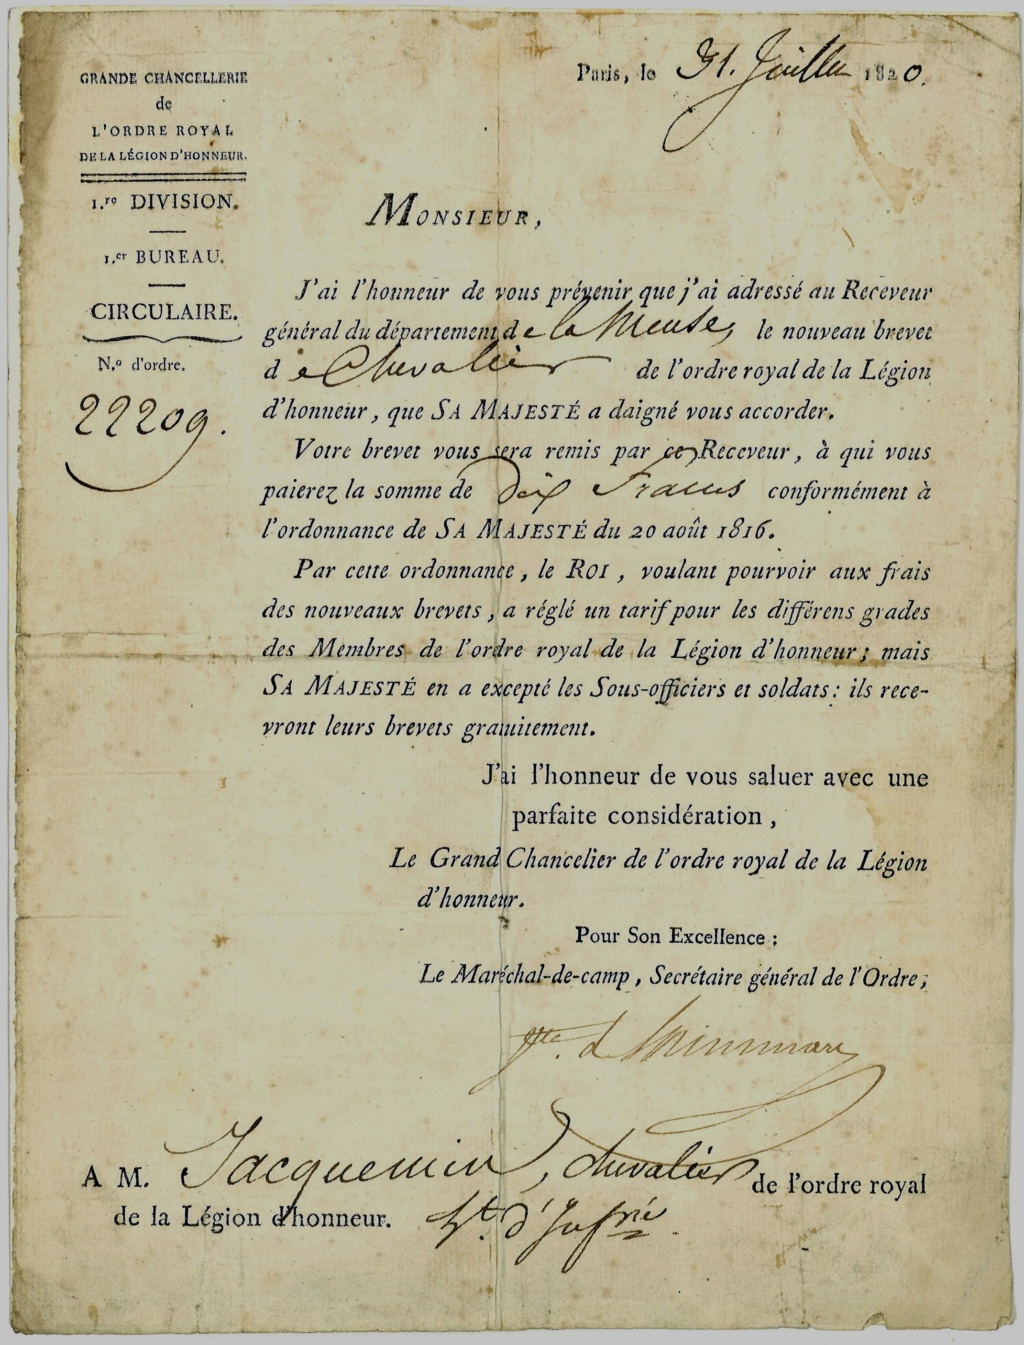 GRANDE CHANCELLERIE
de
L'ORDRE ROYAL
DE LA LÉGION D'HONNEUR.
1.re DIVISION.
1.er BUREAU.
CIRCULAIRE.
N.o d'ordre.
22209.
Paris, le 31. Juillet 1820.
MONSIEUR,
J'ai l'honneur de vous prévenir que j'ai adressé au Receveur
général du département de la Meuse, le nouveau brevet
de Chevalier de l'ordre royal de la Légion
d'honneur, que SA MAJESTÉ a daigné vous accorder.
Votre brevet vous sera remis par ce Receveur, à qui vous
paierez la somme de Dix Francs conformément à
l'ordonnance de SA MAJESTÉ du 20 août 1816.
Par cette ordonnance, le ROI, voulant pourvoir aux frais
des nouveaux brevets, a réglé un tarif pour les différens grades
des Membres de l'ordre royal de la Légion d'honneur; mais
SA MAJESTÉ en a excepté les Sous-officiers et soldats: ils rece-
vront leurs brevets gratuitement.
J'ai l'honneur de vous saluer avec une
parfaite considération,
Le Grand Chancelier de l'ordre royal de la Légion
d'honneur.
Pour Son Excellence:
Le Maréchal-de-camp, Secrétaire général de l'Ordre;
A M. Jacquemin, chevalier de l'ordre royal
de la Légion d'honneur. Lt. d'Infrie.